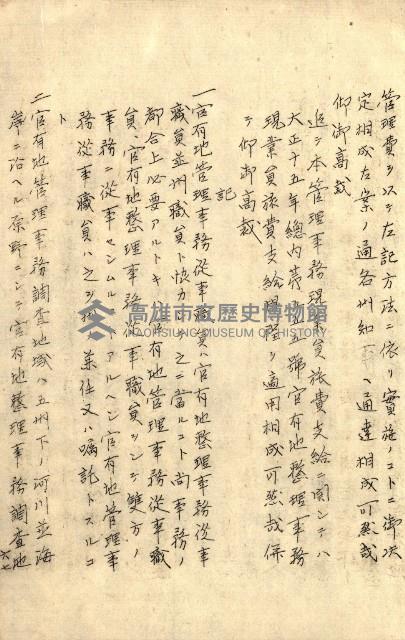 管理費ヲ以テ左記方法ニ依リ實施ノコトニ御决
定相成左案ノ通各州知事ヘ通達相成可然哉
仰御高裁
追テ本管理事務現業員旅費支給ニ関シテハ
大正十五年總内第五五號官有地整理事務
現業員旅費支給内規ヲ適用相成可然哉併
テ仰御高裁
記
一官有地管理事務從事職員ハ官有地整理事務從事
職員並州職員ト協力シ之ニ當ルコト尚事務ノ
都合上必要アルトキハ官有地管理事務從事職
員、官有地整理事務從事職員ヲシテ雙方ノ
事務ニ從事セシムルコトアルヘシ官有地管理事
務從事職員ハ之ヲ州ノ兼任又ハ囑託トスルコ
ト
二官有地管理事務調査地域ハ五州下ノ河川並海
岸ニ沿ヘル原野ニシテ官有地整理事務調査地
高雄市立歷史博物館
KAOHSIUNG MUSEUM OF HISTORY